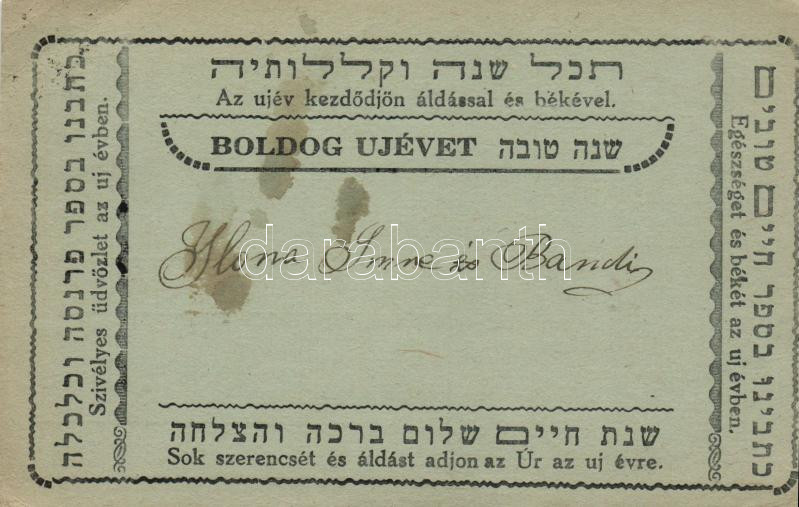 תכל שנה וקללותיה
Az ujév kezdődjön áldással és békével.
BOLDOG UJÉVET שנה טובה
Ilona Imre és Bandi
שנת חיים שלום ברכה והצלחה
Sok szerencsét és áldást adjon az Úr az uj évre.
כתבנו בספר פרנסה וכלכלה
Szivélyes üdvözlet az uj évben.
כתבינו בספר חיים טובים
Egészséget és békét az uj évben.
darabanth